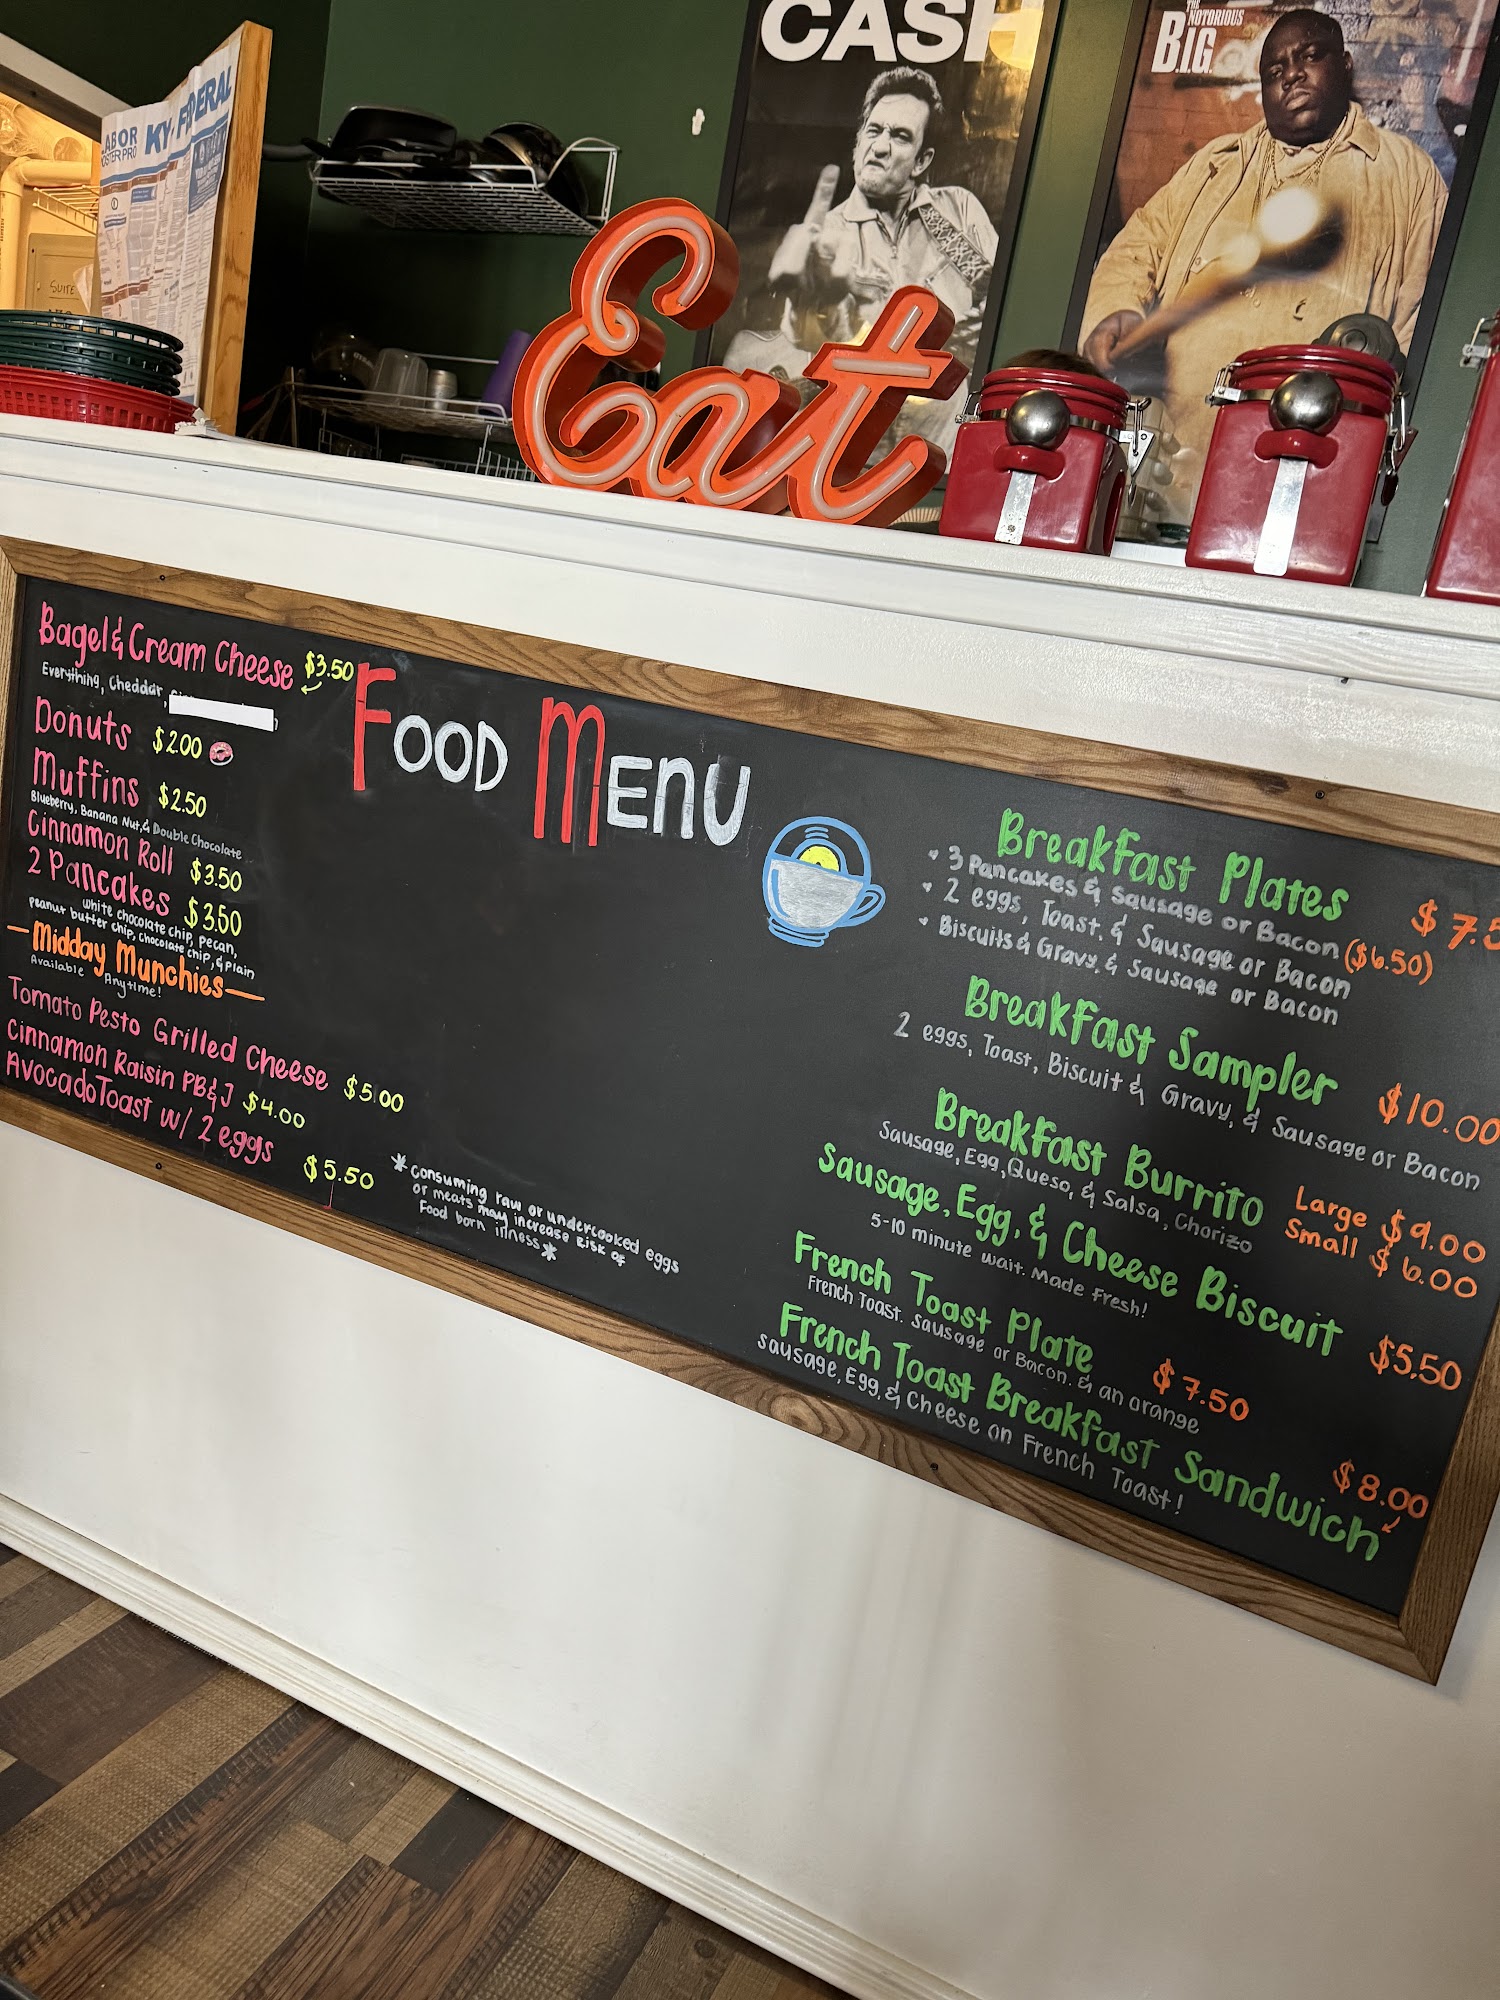 CASH
THE
NOTORIOUS
B.I.G.
LABOR
POSTER PRO
KY. FEDERAL
SUITE
Eat
Bagel & Cream Cheese $3.50
Everything, Cheddar,
Donuts $2.00
Muffins $2.50
Blueberry, Banana Nut, & Double Chocolate
Cinnamon Roll $3.50
2 Pancakes $3.50
white chocolate chip, pecan,
peanut butter chip, chocolate chip, & plain
—Midday Munchies—
Available Anytime!
Tomato Pesto Grilled Cheese $5.00
Cinnamon Raisin PB&J $4.00
Avocado Toast w/ 2 eggs $5.50
*Consuming raw or undercooked eggs
or meats may increase risk of
food born illness*
Food Menu
Breakfast Plates $7.5
3 Pancakes & Sausage or Bacon ($6.50)
2 eggs, Toast, & Sausage or Bacon
Biscuits & Gravy, & Sausage or Bacon
Breakfast Sampler $10.00
2 eggs, Toast, Biscuit & Gravy, & Sausage or Bacon
Breakfast Burrito Large $9.00
Sausage, Egg, Queso, & Salsa, Chorizo Small $6.00
Sausage, Egg, & Cheese Biscuit $5.50
5-10 minute wait. Made Fresh!
French Toast Plate $7.50
French Toast. Sausage or Bacon. & an orange
French Toast Breakfast Sandwich $8.00
Sausage, Egg, & Cheese on French Toast!